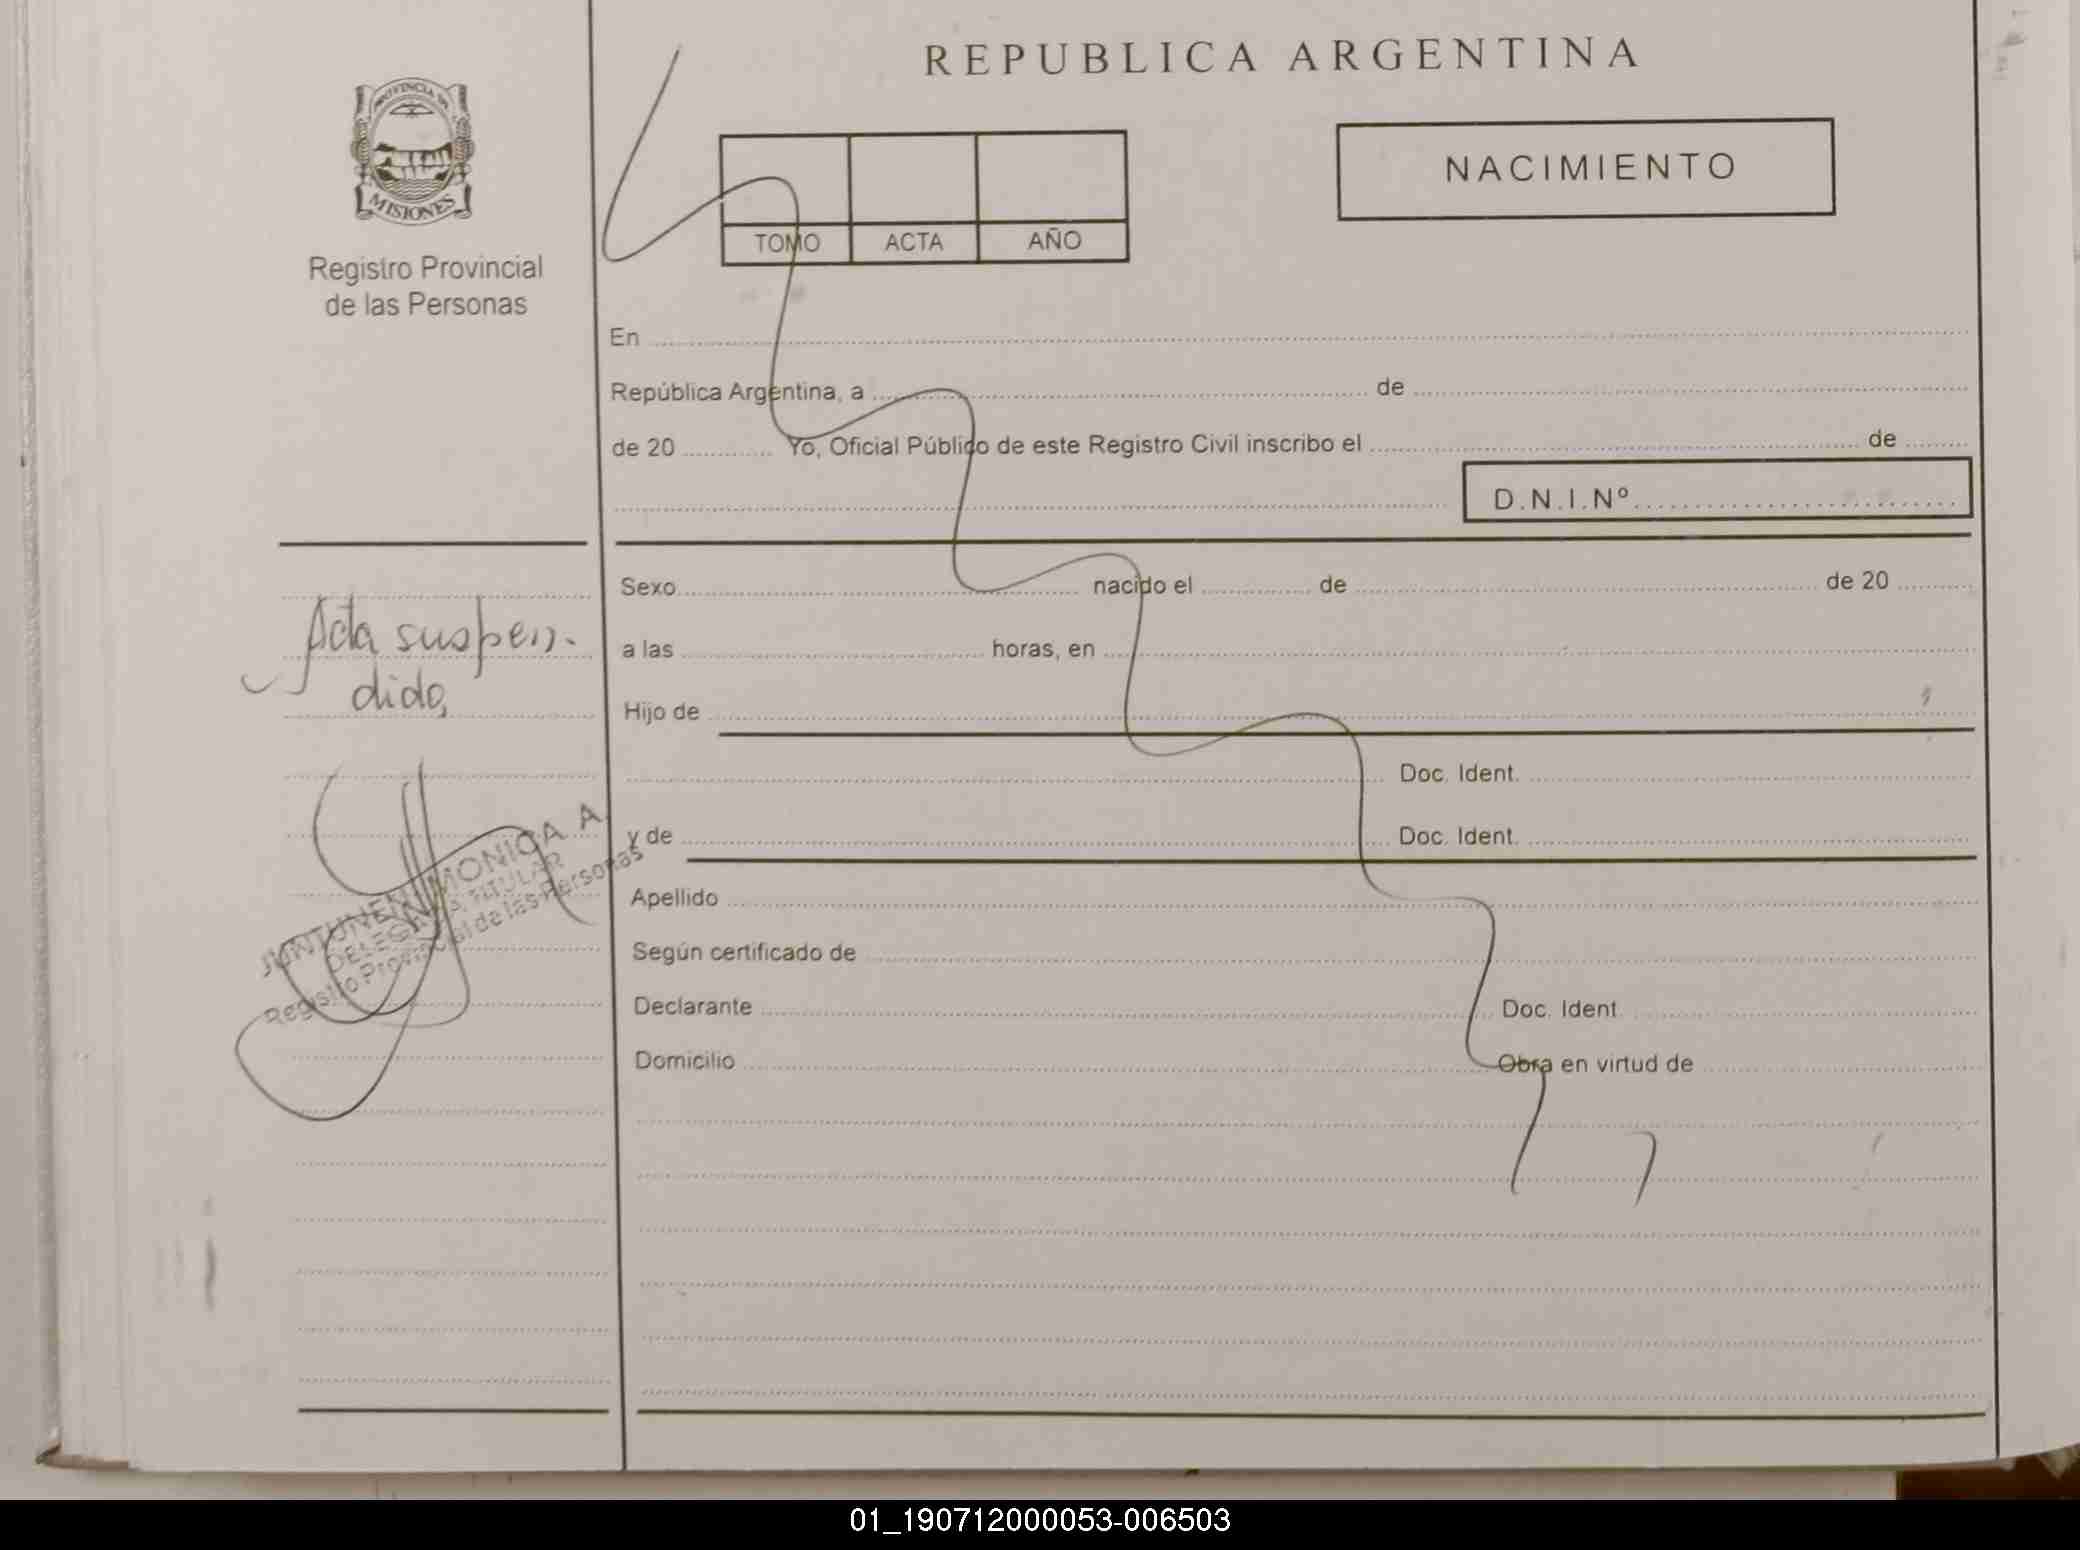 REPUBLICA ARGENTINA
PROVINCIA DE
MISIONES
Registro Provincial
de las Personas
TOMO ACTA AÑO
NACIMIENTO
En
República Argentina, a de
de 20 Yo, Oficial Público de este Registro Civil inscribo el de
D.N.I.Nº
Sexo nacido el de de 20
a las horas, en
Hijo de
Doc. Ident.
y de Doc. Ident.
Apellido
Según certificado de
Declarante Doc. Ident.
Domicilio Obra en virtud de
Acta suspen-
dido,
MONICA A
DELEGADA TITULAR
Registro Provincial de las Personas
01_190712000053-006503